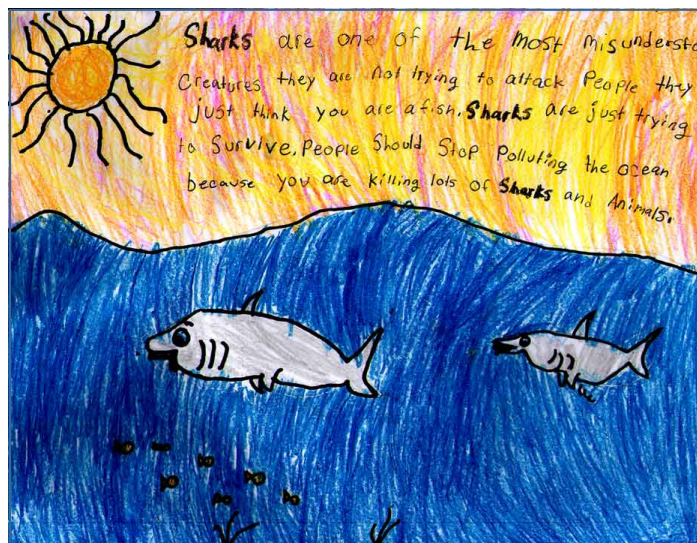 Sharks are one of the most misundersto
Creatures they are not trying to attack People they
just think you are a fish. Sharks are just trying
to Survive. People Should Stop Polluting the ocean
because you are killing lots of Sharks and Animals.